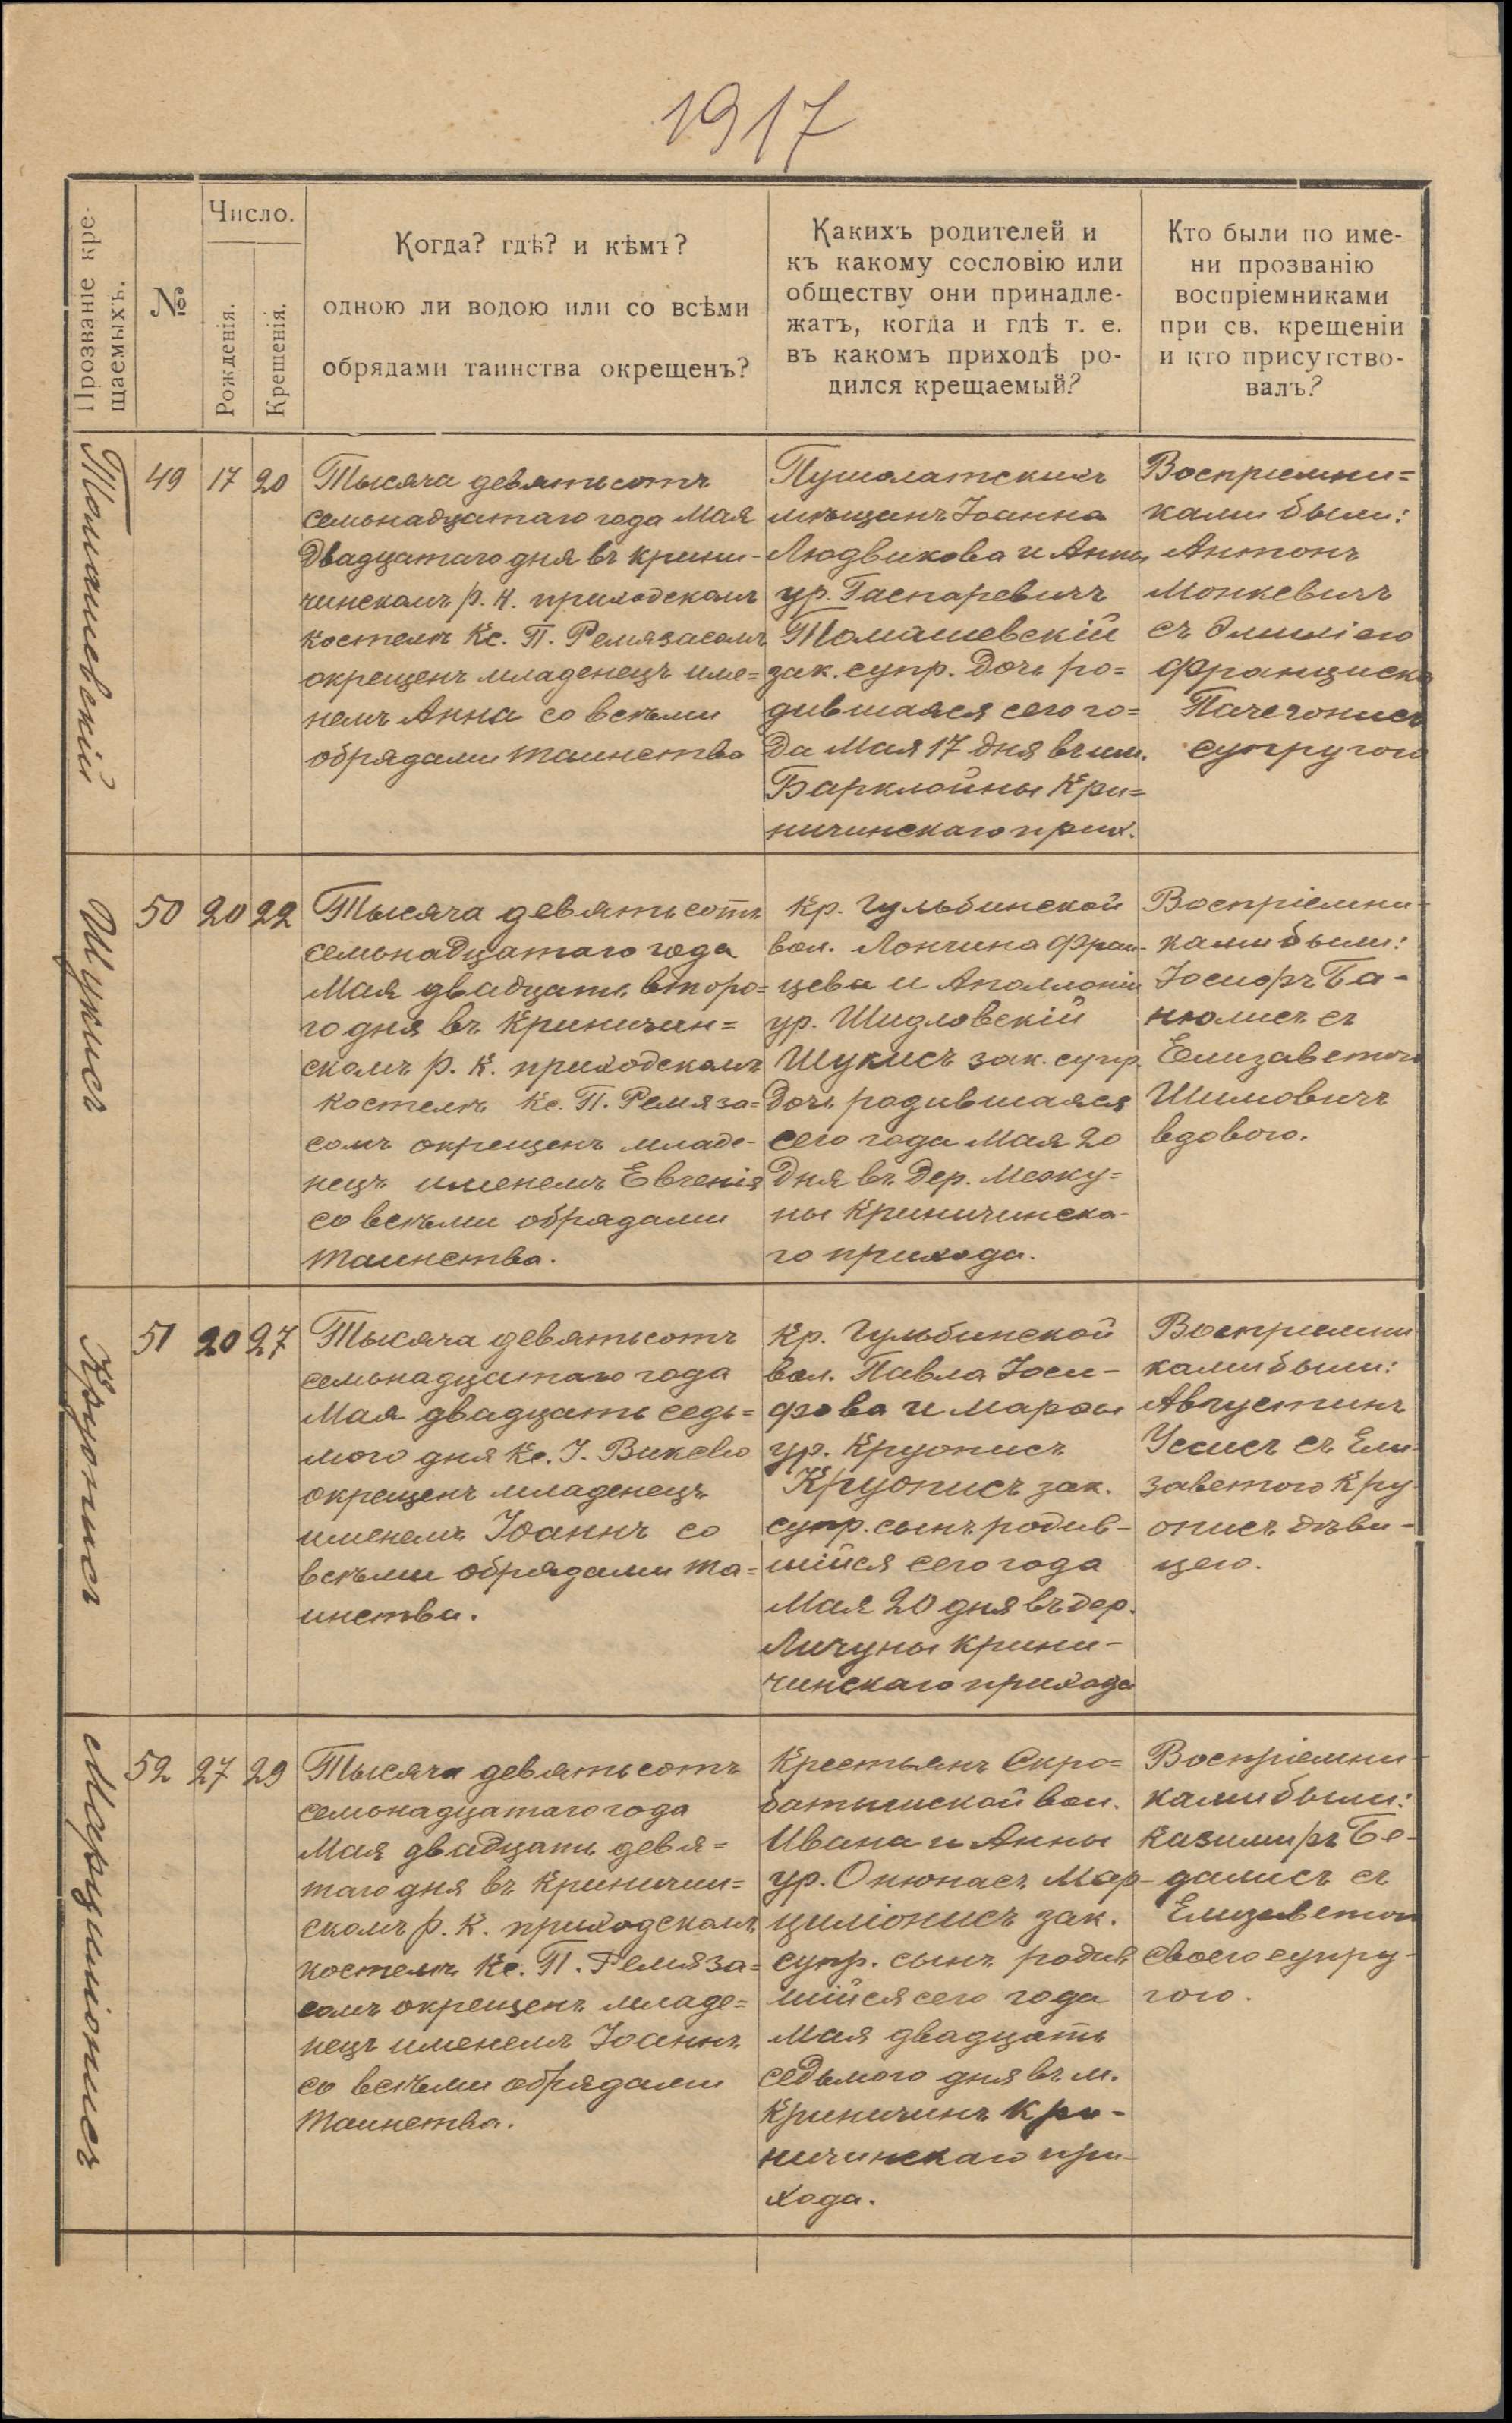 1917
Прозваніе кре-
щаемыхъ.
№
Число.
Рожденія.
Крещенія.
Когда? гдѣ? и кѣмъ?
одною ли водою или со всѣми
обрядами таинства окрещенъ?
Какихъ родителей и
къ какому сословію или
обществу они принадле-
жатъ, когда и гдѣ т. е.
въ какомъ приходѣ ро-
дился крещаемый?
Кто были по име-
ни прозванію
воспріемниками
при св. крещеніи
и кто присутство-
валъ?
Томашевскій
49 17 20
Тысяча девятьсотъ
семьнадцатаго года Мая
двадцатаго дня въ Крини-
чинскомъ р. к. приходскомъ
костелѣ Кс. П. Ремязасомъ
окрещенъ младенецъ име=
немъ Анна со всѣми
обрядами таинства
Пушолатскихъ
мѣщанъ Іоанна
Людвикова и Анны
ур. Гаспаревичъ
Томашевскій
зак. супр. дочь ро=
дившаяся сего го=
да Мая 17 дня въ им.
Барклойны Кри=
ничинскаго прих.
Воспріемни=
ками были:
Антонъ
Монкевичъ
съ
Франциска
супругою
Шукисъ
50 20 22
Тысяча девятьсотъ
семьнадцатаго года
Мая двадцать второ=
го дня въ Криничин=
скомъ р. к. приходскомъ
костелѣ Кс. П. Ремяза=
сомъ окрещенъ младе-
нецъ именемъ Евгенія
со всѣми обрядами
таинства.
Кр. Гульбинской
вол. Лонгина Фран-
цева и Аполлоніи
ур. Шидловскій
Шукисъ зак. супр.
дочь родившаяся
сего года Мая 20
дня въ дер. Межу=
ны Криничинска-
го прихода.
Воспріемни-
ками были:
Іосифъ Ба-
нюлисъ съ
Елизаветою
Шимовичъ
вдовою.
Круописъ
51 20 27
Тысяча девятьсотъ
семьнадцатаго года
Мая двадцать седь=
мого дня Кс. І. Виксво
окрещенъ младенецъ
именемъ Іоаннъ со
всѣми обрядами та=
инства.
Кр. Гульбинской
вол. Павла Іоси-
фова и Марѳы
ур. Круописъ
Круописъ зак.
супр. сынъ родив-
шійся сего года
Мая 20 дня въ дер.
Личуны Крини-
чинскаго прихода
Воспріемни
ками были:
Августинъ
Усисъ съ Ели-
заветою Кру-
описъ дѣви-
цею.
Марциліонисъ
52 27 29
Тысяча девятьсотъ
семьнадцатаго года
Мая двадцать девя=
таго дня въ Криничин=
скомъ р. к. приходскомъ
костелѣ Кс. П. Ремяза=
сомъ окрещенъ младе=
нецъ именемъ Іоаннъ
со всѣми обрядами
таинства.
Крестьянъ Скро=
батишской вол.
Ивана и Анны
ур. Онюнасъ Мар-
циліонисъ зак.
супр. сынъ родив
шійся сего года
Мая двадцать
седьмого дня въ м.
Криничинъ Кри-
ничинскаго при-
хода.
Воспріемни-
ками были:
Казимиръ Бе-
далисъ съ
Елизаветою
своею супру-
гою.